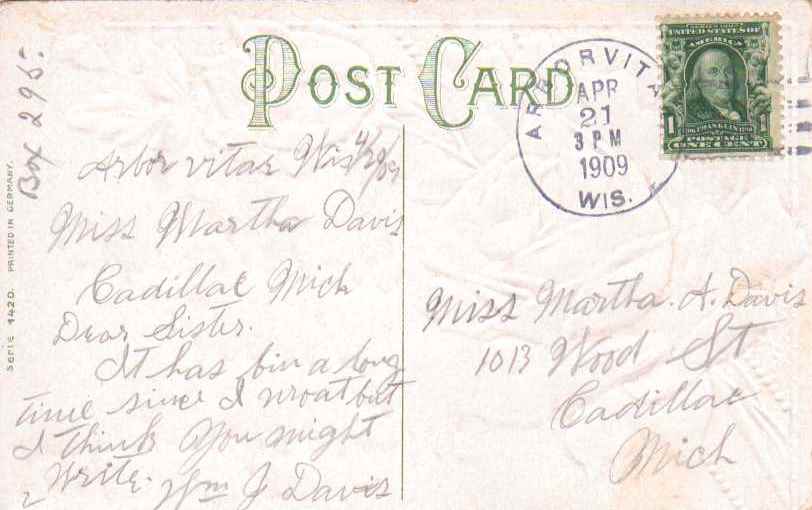 POST CARD
ARBORVITA
APR
21
3 PM
1909
WIS.
UNITED STATES OF
AMERICA
1 FRANKLIN 1
POSTAGE
ONE CENT
Box 295.
SERIE 1420. PRINTED IN GERMANY.
Arbor vitae Wis 4/20/09
Miss Martha Davis
Cadillac Mich
Dear Sister.
It has bin a long
time since I wroat but
I think You might
Write.
Wm J Davis
Miss Martha. A. Davis
1013 Wood St
Cadillac
Mich